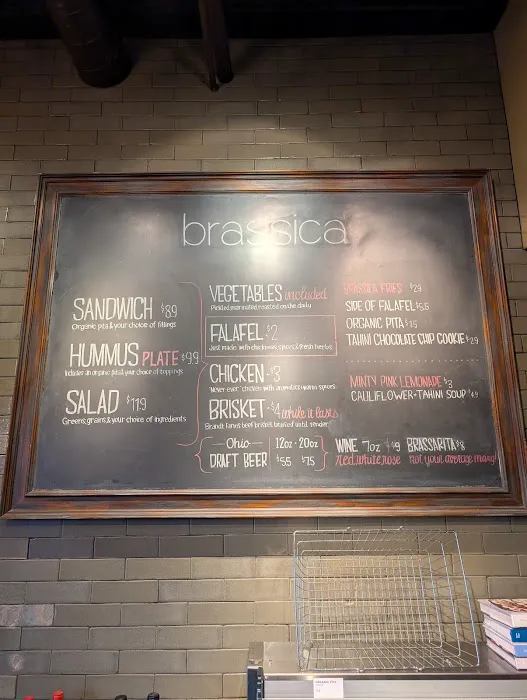 brassica
SANDWICH $8.9
Organic pita & your choice of fillings
HUMMUS PLATE $9.9
Includes an organic pita & your choice of toppings
SALAD $11.9
Greens, grains & your choice of ingredients
VEGETABLES included
Pickled, marinated, roasted on the daily
FALAFEL - $2
Just made with chickpeas, spices & fresh herbs
CHICKEN - $3
'Never ever' chicken with aromatics, warm spices
BRISKET - $4 while it lasts
Brandt farms beef brisket, braised until tender
Ohio
DRAFT BEER
12oz · 20oz
$5.5 $7.5
BRASSICA FRIES $2.9
SIDE OF FALAFEL $5.5
ORGANIC PITA $1.5
TAHINI CHOCOLATE CHIP COOKIE $2.9
MINTY PINK LEMONADE $3
CAULIFLOWER + TAHINI SOUP $4.9
WINE 7oz $9
red, white, rose
BRASSARITA $8
not your average marg!